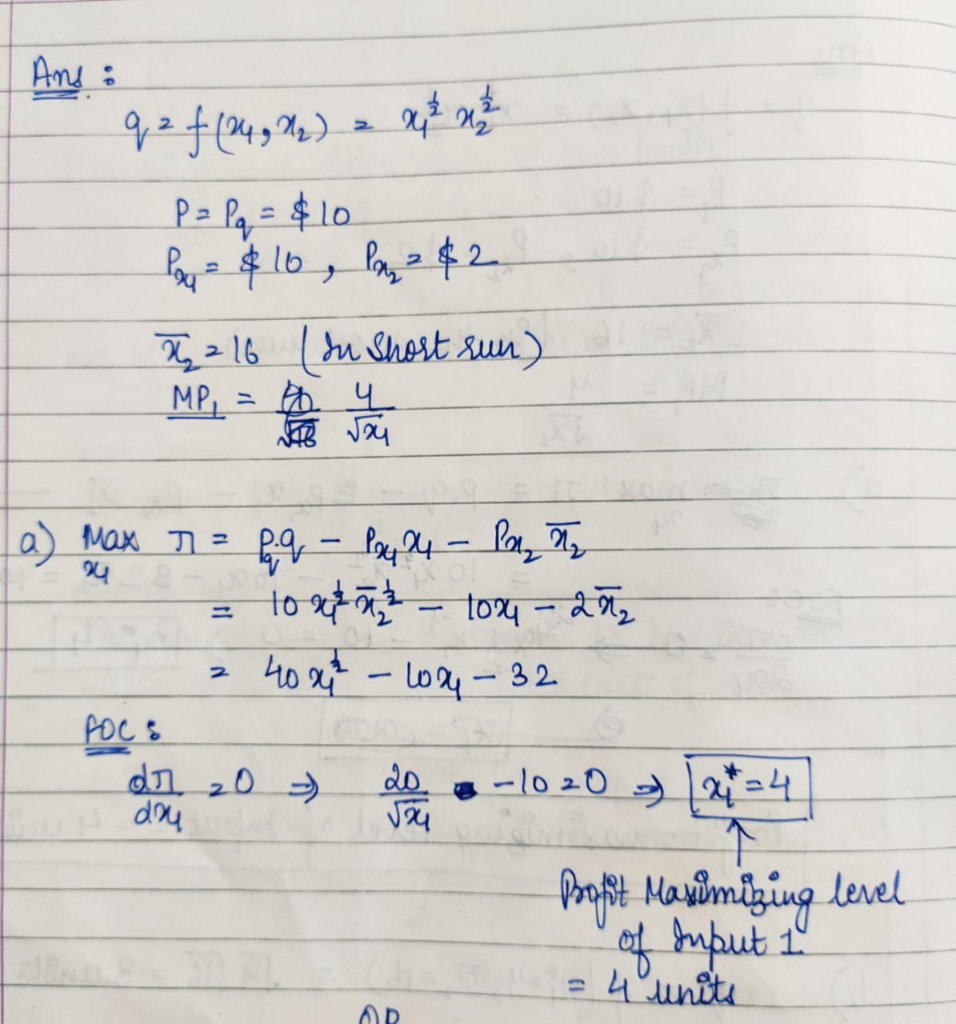 Ans :
q = f(x₁, x₂) = x₁^½ x₂^½
P = Pq = $10
Px₁ = $10, Px₂ = $2
x̄₂ = 16 (In Short run)
MP₁ = 4/√x₁
a) Max x₁ π = Pq.q – Px₁ x₁ – Px₂ x̄₂
= 10 x₁^½ x̄₂^½ – 10x₁ – 2x̄₂
= 40 x₁^½ – 10x₁ – 32
FOC :
dπ/dx₁ = 0 ⇒ 20/√x₁ - 10 = 0 ⇒ x₁* = 4
Profit Maximizing level
of Input 1
= 4 units
OR